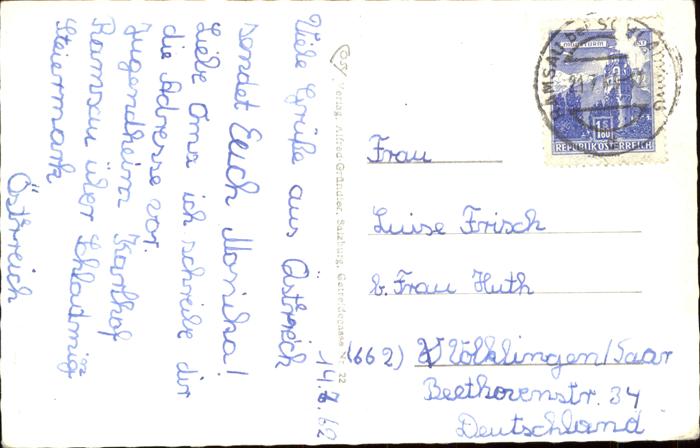 Viele Grüße aus Östereich
sendet Euch Monika!
Liebe Oma ich schreibe dir
die Adresse vor.
Jugendheim Karlhof
Ramsau über Schladmig
Steiermark
Östereich
14.7.62
Verlag Alfred Gründler, Salzburg, Getreidegasse Nr. 22
RAMSAU bei SCHLADMING
REPUBLIK ÖSTERREICH
Frau
Luise Frisch
b. Frau Huth
(662) Völklingen/Saar
Beethovenstr. 34
Deutschland